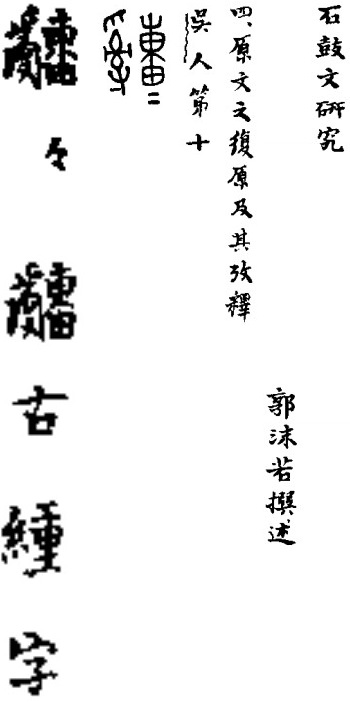 石鼓文研究
郭沫若撰述
四、原文之復原及其攷釋
吳人第十
々古緟字